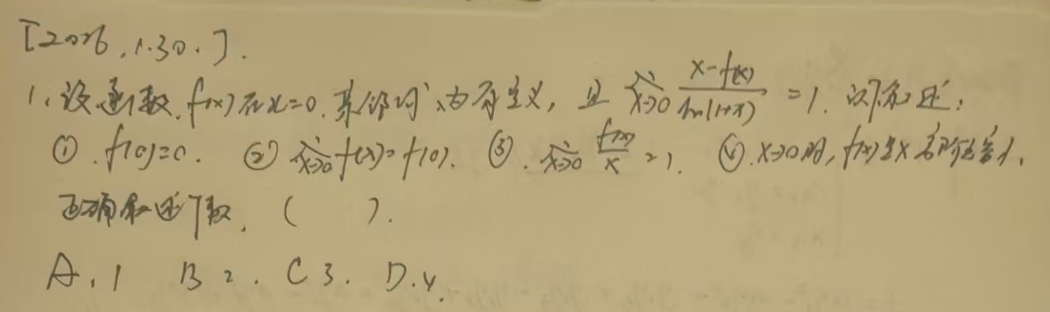 [2026.1.30.].
1、设函数f(x)在x=0某邻域内有定义, 且 lim x→0 (x-f(x))/ln(1+x) =1. 以下叙述:
① f(0)=0. ② lim x→0 f(x)=f(0). ③. lim x→0 f(x)/x =1. ④.x→0时, f(x)是x高阶无穷小.
正确叙述个数, ( ).
A. 1 B 2. C 3. D.4.